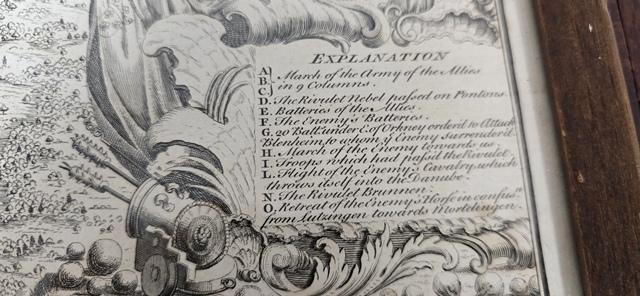 EXPLANATION
A
B March of the Army of the Allies
C in 9 Columns.
D. The Rivulet Nebel passed on Pontons.
E. Batteries of the Allies.
F. The Enemy's Batteries.
G. 20 Batt. under E. of Orkney order'd to Attack
Blenheim, to whom y.e Enemy surrender'd.
H. March of the Enemy towards us.
I. Troops which had pass'd the Rivulet.
L. Flight of the Enemy's Cavalry, which
throws itself into the Danube.
N. The Rivulet Brunnen.
O. Retreat of the Enemy's Horse in confus.n
from Lutzingen towards Mortelingen.